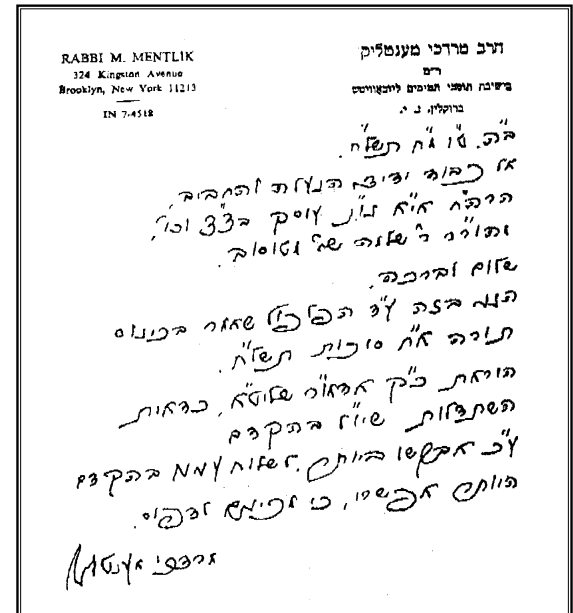 RABBI M. MENTLIK
324 Kingston Avenue
Brooklyn, New York 11213
IN 7-4518
הרב מרדכי מענטליק
ר״מ
בישיבת תומכי תמימים ליובאוויטש
ברוקלין, נ. י.
ב"ה. ט"ו מ"ח תשל"ח.
אל כבוד ידידי הנעלה והחביב,
הרה"ח אי"א נו"נ עוסק בצ"צ וכו',
והור"ר ר' שלמה שי' מטוסוב.
שלום וברכה.
הנני בזה ע"ד הפלפול שאמר בכינוס
תורה סוכות תשל"ח.
הוראת כ"ק אדמו"ר שליט"א,
השתדלות שיו"ל בהקדם
ע"כ אבקשו ביותר, לשלוח בהקדם
היותר אפשרי, כי לדפוס.
מרדכי מענטליק